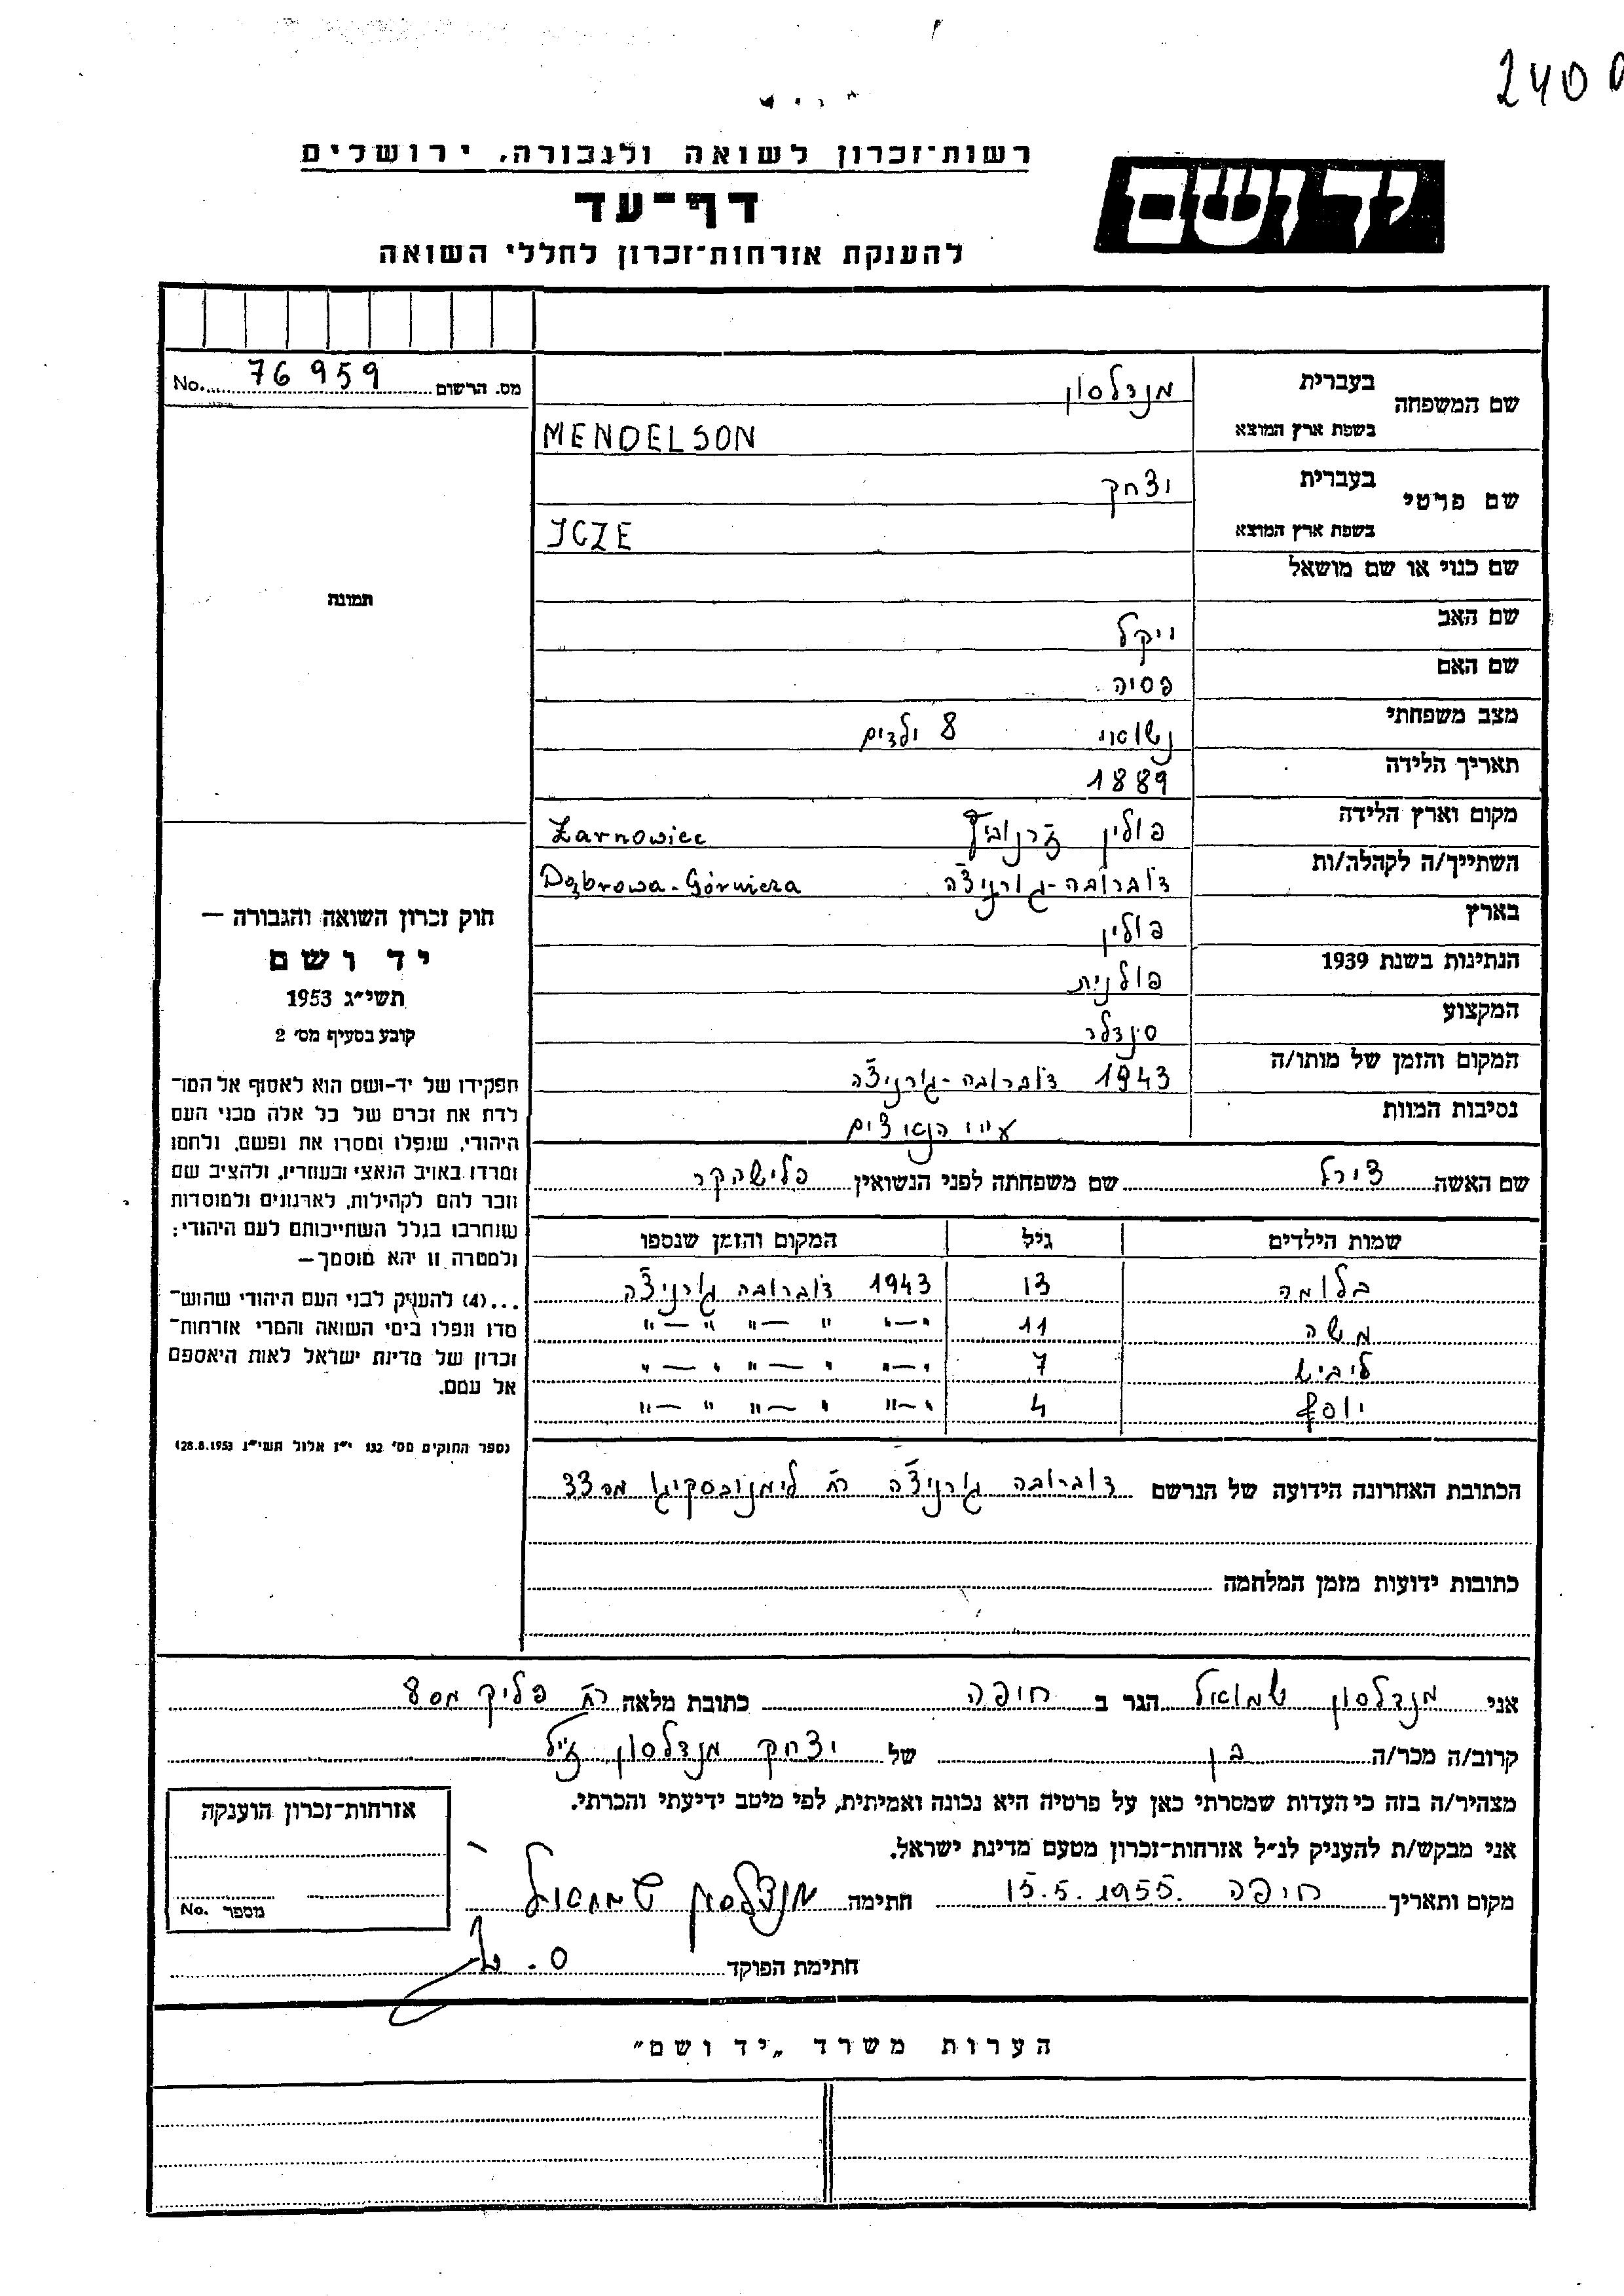 240
יד ושם
רשות־זכרון לשואה ולגבורה, ירושלים
דף־עד
להענקת אזרחות־זכרון לחללי השואה
מס. הרשום 76959 No.
שם המשפחה בעברית מנדלסון
בשפת ארץ המוצא MENDELSON
שם פרטי בעברית יצחק
בשפת ארץ המוצא ICZE
שם כנוי או שם מושאל
שם האב ויקל
שם האם פסיה
מצב משפחתי נשואי 8 ילדים
תאריך הלידה 1889
מקום וארץ הלידה פולין Żarnowiec
השתייך/ה לקהלה/ות דוברובה-גורניצ'ה Dąbrowa-Górnicza
בארץ פולין
הנתינות בשנת 1939 פולנית
המקצוע סנדלר
המקום והזמן של מותו/ה 1943 דוברובה-גורניצ'ה
נסיבות המוות ע"י הנאצים
שם האשה צירל שם משפחתה לפני הנשואין פלישהקר
שמות הילדים גיל המקום והזמן שנספו
בלומה 13 1943 דוברובה גורניצ'ה
משה 11 "—" " —" "—"
ליביש 7 "—" " —" "—"
יוסף 4 "—" " —" "—"
הכתובת האחרונה הידועה של הנרשם דוברובה גורניצ'ה רח' לימנובסקיגו מס 33
כתובות ידועות מזמן המלחמה
תמונה
חוק זכרון השואה והגבורה —
יד ושם
תשי״ג 1953
קובע בסעיף מס׳ 2
תפקידו של יד־ושם הוא לאסוף אל המו־
לדת את זכרם של כל אלה מבני העם
היהודי, שנפלו ומסרו את נפשם, ולחמו
ומרדו באויב הנאצי ובעוזריו, ולהציב שם
וזכר להם לקהילות, לארגונים ולמוסדות
שנחרבו בגלל השתייכותם לעם היהודי;
ולמטרה זו יהא מוסמך—
...(4) להעניק לבני העם היהודי שהוש־
מדו ונפלו בימי השואה והמרי אזרחות־
זכרון של מדינת ישראל לאות היאספם
אל עמם.
(ספר החוקים מס׳ 132 י״ז אלול תשי״ג 28.8.1953)
אני מנדלסון שמואל הגר ב חיפה כתובת מלאה רח' פליק מס 8
קרוב/ה מכר/ה בן של יצחק מנדלסון ז"ל
מצהיר/ה בזה כי העדות שמסרתי כאן על פרטיה היא נכונה ואמיתית, לפי מיטב ידיעתי והכרתי.
אני מבקש/ת להעניק לנ״ל אזרחות־זכרון מטעם מדינת ישראל.
מקום ותאריך חיפה 15.5.1955 חתימה מנדלסון שמואל
חתימת הפוקד
אזרחות־זכרון הוענקה
מספר No.
הערות משרד „יד ושם״